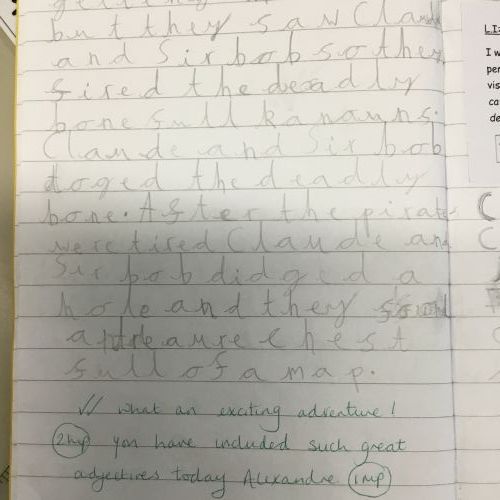 but they saw Claude
and Sir bob so they
fired the deadly
bone full kanauns.
Claude and Sir bob
doged the deadly
bone. After the pirates
were tired Claude and
Sir bob didged a
hole and they found
a treaure chest
full of a map.
✓✓ What an exciting adventure!
2hp you have included such great
adjectives today Alexandre 1hp
L.I:
I w
per
vis
ca
de